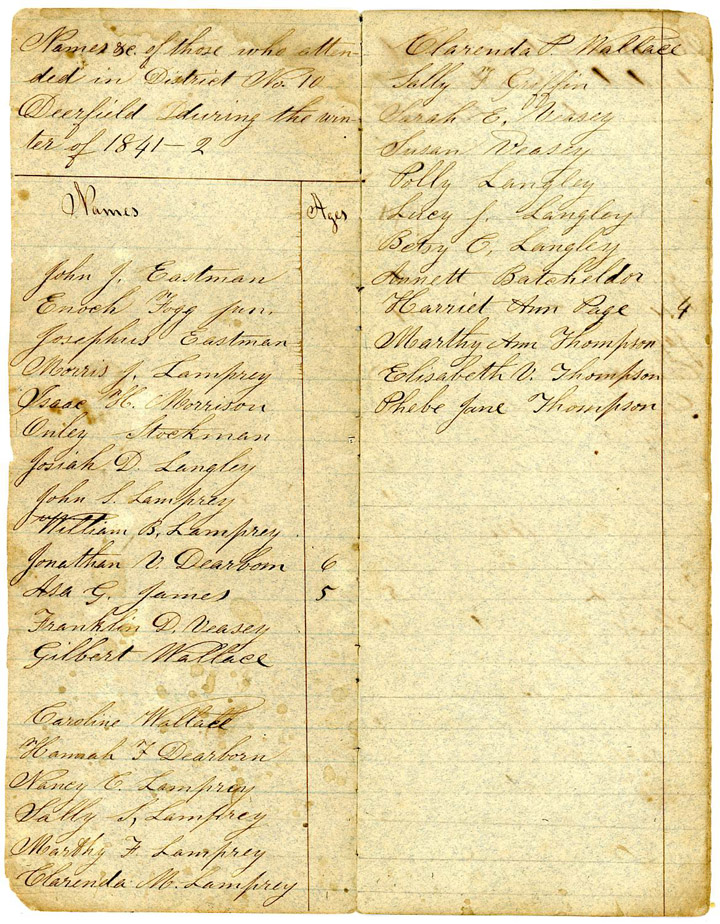 Names &c. of those who atten-
ded in District No. 10
Deerfield during the win-
ter of 1841–2
Names Ages
John J. Eastman
Enoch Fogg jun.
Josephus Eastman
Morris J. Lamprey
Isaac H. Morrison
Onley Stockman
Josiah D. Langley
John S. Lamprey
William B. Lamprey
Jonathan V. Dearborn 6
Asa G. James 5
Franklin D. Veasey
Gilbert Wallace
Caroline Wallace
Hannah F Dearborn
Nancy C. Lamprey
Sally S, Lamprey
Marthy F. Lamprey
Clarenda M. Lamprey
Clarenda P. Wallace
Sally F Griffin
Sarah E. Veasey
Susan Veasey
Polly Langley
Lucy J. Langley
Betsy C, Langley
Annett Batcheldor
Harriet Ann Page 4
Marthy Ann Thompson
Elisabeth V. Thompson
Phebe Jane Thompson